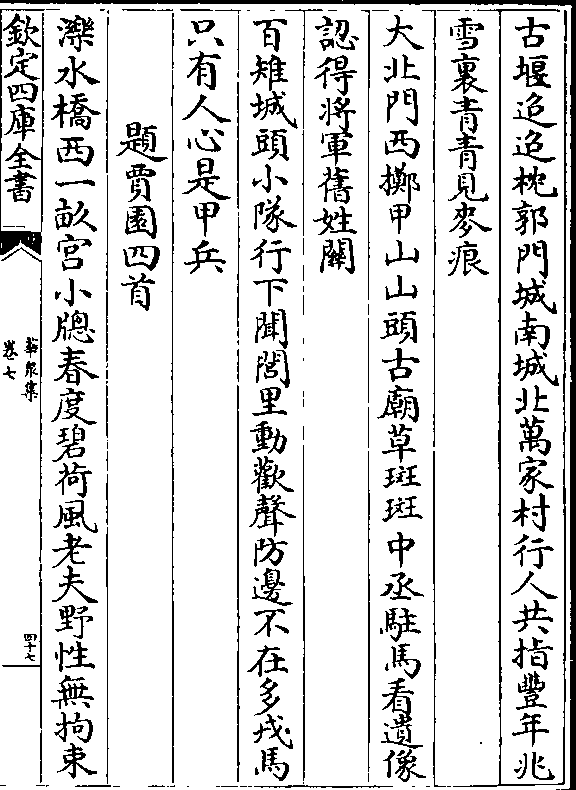 古堰迢迢枕郭門城南城北萬家村行人共指豐年兆
雪裏青青見麥痕
大北門西擲甲山山頭古廟草斑斑中丞駐馬看遺像
認得將軍舊姓關
百雉城頭小隊行下聞閭里動歡聲防邊不在多戎馬
只有人心是甲兵
題賈園四首
濼水橋西一畝宮小牕春度碧荷風老夫野性無拘束
欽定四庫全書
華泉集
卷七
四十七